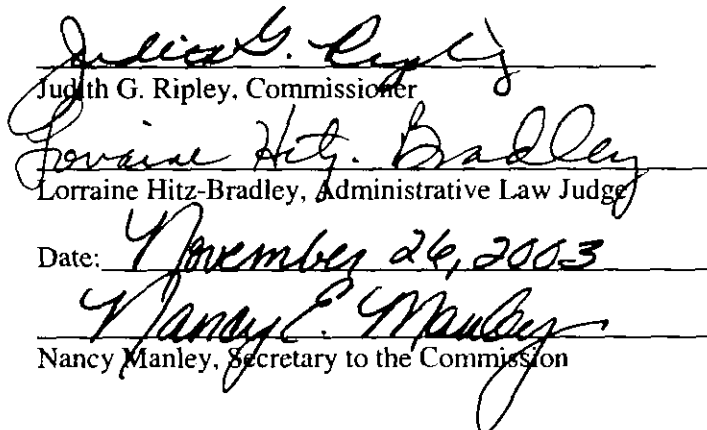 Judith G. Ripley
Judith G. Ripley, Commissioner
Lorraine Hitz-Bradley
Lorraine Hitz-Bradley, Administrative Law Judge
Date: November 26, 2003
Nancy E. Manley
Nancy Manley, Secretary to the Commission